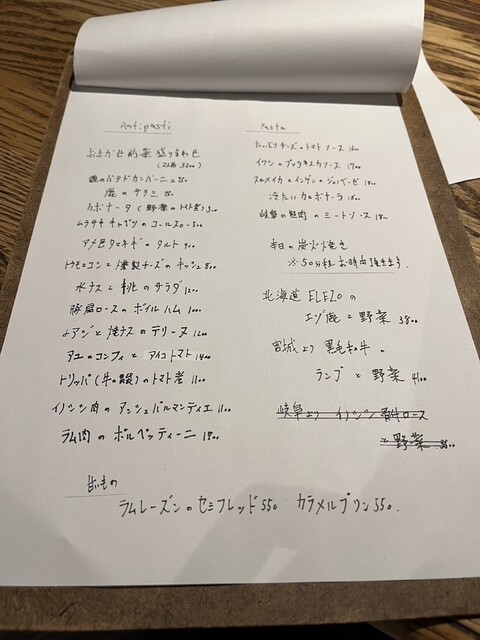 Antipasti
おまかせ前菜 盛り合わせ
(2名 3200)
鹿のパテドカンパーニュ
鹿のサラミ
カポナータ (野菜のトマト煮)
ムラサキキャベツのコールスロー 500
アメ色タマネギのタルト 700
トウモロコシと燻製チーズのキッシュ 800
水ナスと桃のサラダ 1200
豚肩ロースのボイルハム 1000
アジと焼ナスのテリーヌ 1200
アユのコンフィとアイコトマト 1400
トリッパ(牛の胃)のトマト煮 1100
イノシシ肉のアッシュパルマンティエ 1100
ラム肉のポルペッティーニ 1800
Pasta
たっぷりチーズのトマトソース 1600
イワシのプッタネスカソース 1700
スルメイカとインゲンのジェノベーゼ 1800
冷たいカルボナーラ 1800
岐阜の鹿肉のミートソース 1800
本日の炭火焼き
※50分程お時間頂きます。
北海道 ELEZOの
エゾ鹿と野菜 3800
宮城より 黒毛和牛の
ランプと野菜 4100
岐阜より イノシシ 骨付ロース
と野菜
甘いもの
ラムレーズンのセミフレッド 550 カラメルプリン 550.